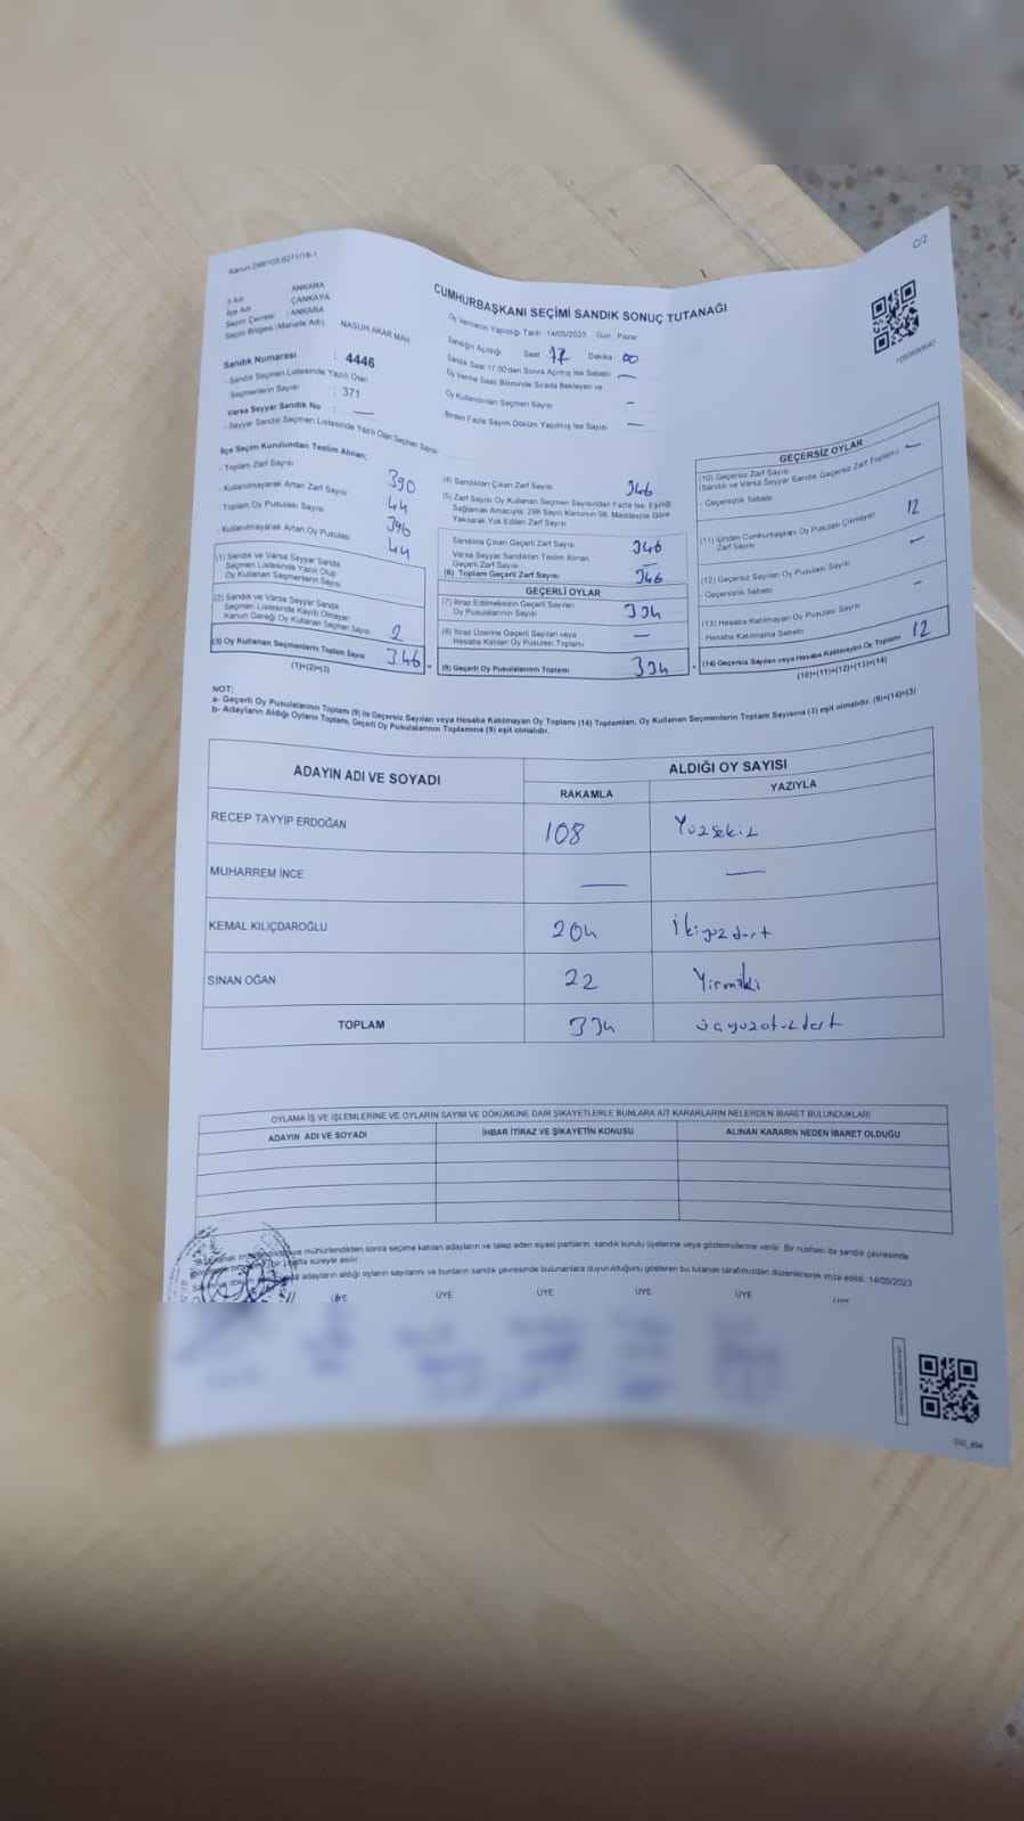 Kanun
O/2
İl Adı : ANKARA
İlçe Adı : ÇANKAYA
Seçim Çevresi : ANKARA
Seçim Bölgesi (Mahalle Adı) : NASUH AKAR MAH
CUMHURBAŞKANI SEÇİMİ SANDIK SONUÇ TUTANAĞI
Oy Vermenin Yapıldığı Tarih: 14/05/2023 Gün: Pazar
Sandığın Açıldığı Saat 17 Dakika 00
Sandık Saat 17.00'den Sonra Açılmış İse Sebebi —
Oy Verme Saati Bitiminde Sırada Bekleyen ve
Oy Kullandırılan Seçmen Sayısı –
Birden Fazla Sayım Döküm Yapılmış İse Sayısı —
Sandık Numarası : 4446
- Sandık Seçmen Listesinde Yazılı Olan
Seçmenlerin Sayısı : 371
Varsa Seyyar Sandık No : —
- Seyyar Sandık Seçmen Listesinde Yazılı Olan Seçmen Sayısı
İlçe Seçim Kurulundan Teslim Alınan;
- Toplam Zarf Sayısı 390
- Kullanılmayarak Artan Zarf Sayısı 44
Toplam Oy Pusulası Sayısı 390
- Kullanılmayarak Artan Oy Pusulası 44
(1) Sandık ve Varsa Seyyar Sandık
Seçmen Listesinde Yazılı Olup
Oy Kullanan Seçmenlerin Sayısı
(2) Sandık ve Varsa Seyyar Sandık
Seçmen Listesinde Kayıtlı Olmayıp
Kanun Gereği Oy Kullanan Seçmen Sayısı 2
(3) Oy Kullanan Seçmenlerin Toplam Sayısı 346
(1)+(2)=(3)
(4) Sandıktan Çıkan Zarf Sayısı 346
(5) Zarf Sayısı Oy Kullanan Seçmen Sayısından Fazla İse, Eşitliği
Sağlamak Amacıyla, 298 Sayılı Kanunun 98. Maddesine Göre
Yakılarak Yok Edilen Zarf Sayısı
Sandıkta Çıkan Geçerli Zarf Sayısı 346
Varsa Seyyar Sandıktan Teslim Alınan
Geçerli Zarf Sayısı —
(6) Toplam Geçerli Zarf Sayısı 346
GEÇERLİ OYLAR
(7) İtiraz Edilmeksizin Geçerli Sayılan
Oy Pusulalarının Sayısı 334
(8) İtiraz Üzerine Geçerli Sayılan veya
Hesaba Katılan Oy Pusulası Toplamı —
(9) Geçerli Oy Pusulalarının Toplamı 334
GEÇERSİZ OYLAR
(10) Geçersiz Zarf Sayısı
(Sandık ve Varsa Seyyar Sandık Geçersiz Zarf Toplamı) —
- Geçersizlik Sebebi
(11) İçinden Cumhurbaşkanı Oy Pusulası Çıkmayan
Zarf Sayısı 12
(12) Geçersiz Sayılan Oy Pusulası Sayısı –
- Geçersizlik Sebebi
(13) Hesaba Katılmayan Oy Pusulası Sayısı –
Hesaba Katılmama Sebebi
(14) Geçersiz Sayılan veya Hesaba Katılmayan Oy Toplamı 12
(10)+(11)+(12)+(13)=(14)
NOT:
a- Geçerli Oy Pusulalarının Toplamı (9) ile Geçersiz Sayılan veya Hesaba Katılmayan Oy Toplamı (14) Toplamları, Oy Kullanan Seçmenlerin Toplam Sayısına (3) eşit olmalıdır. (9)+(14)=(3)
b- Adayların Aldığı Oyların Toplamı, Geçerli Oy Pusulalarının Toplamına (9) eşit olmalıdır.
ADAYIN ADI VE SOYADI
ALDIĞI OY SAYISI
RAKAMLA YAZIYLA
RECEP TAYYİP ERDOĞAN 108 Yüzsekiz
MUHARREM İNCE — —
KEMAL KILIÇDAROĞLU 204 İkiyüzdört
SİNAN OĞAN 22 Yirmiiki
TOPLAM 334 üçyüzotuzdört
OYLAMA İŞ VE İŞLEMLERİNE VE OYLARIN SAYIM VE DÖKÜMÜNE DAİR ŞİKAYETLERLE BUNLARA AİT KARARLARIN NELERDEN İBARET BULUNDUKLARI
ADAYIN ADI VE SOYADI İHBAR İTİRAZ VE ŞİKAYETİN KONUSU ALINAN KARARIN NEDEN İBARET OLDUĞU
mühürlendikten sonra seçime katılan adayların ve talep eden siyasi partilerin sandık kurulu üyelerine veya gözlemcilerine verilir. Bir nüshası da sandık çevresinde
hafta süreyle asılır.
adayların aldığı oyların sayılarını ve bunların sandık çevresinde bulunanlara duyurulduğunu gösteren bu tutanak tarafımızdan düzenlenerek imza edildi. 14/05/2023
ÜYE ÜYE ÜYE ÜYE ÜYE